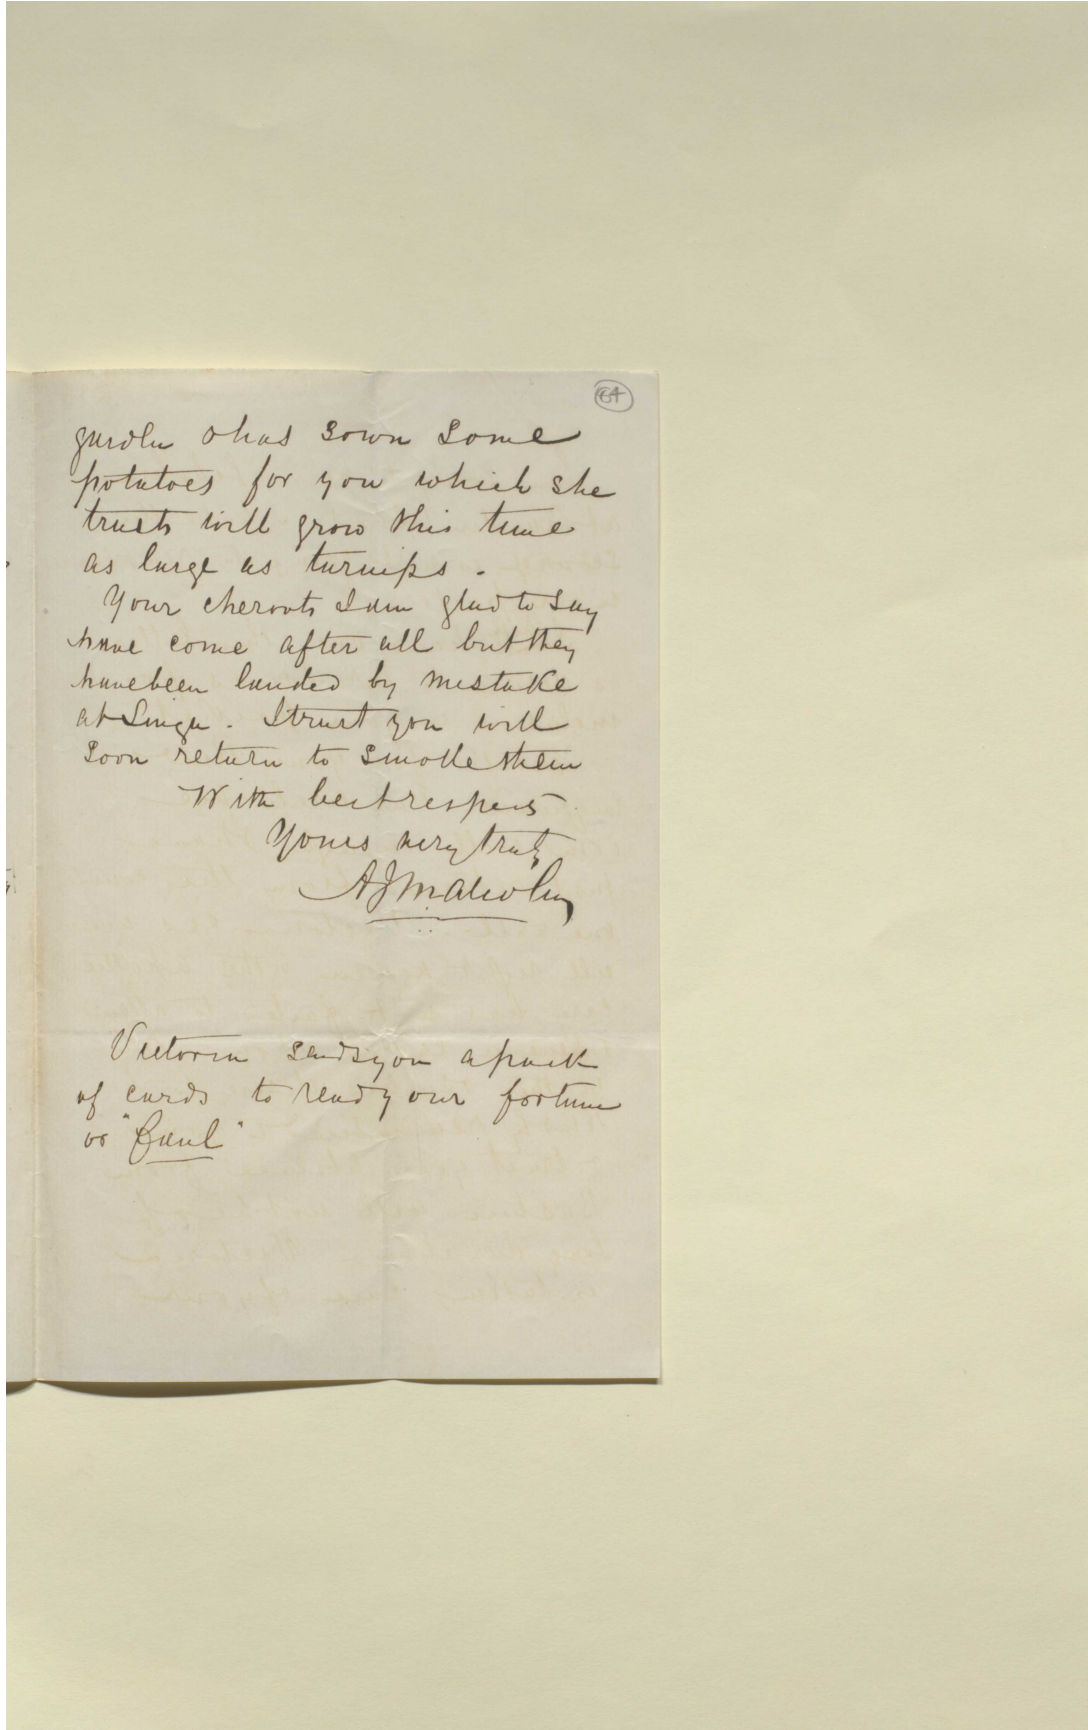 64
garden & has sown some
potatoes for you which she
trusts will grow this time
as large as turnips.
Your cheroots I am glad to say
have come after all but they
have been landed by mistake
at Linga. I trust you will
soon return to smoke them
With best respects
Yours very truly
A J Malcolm
Victoria sends you a pack
of cards to read your fortune
or "Faul"